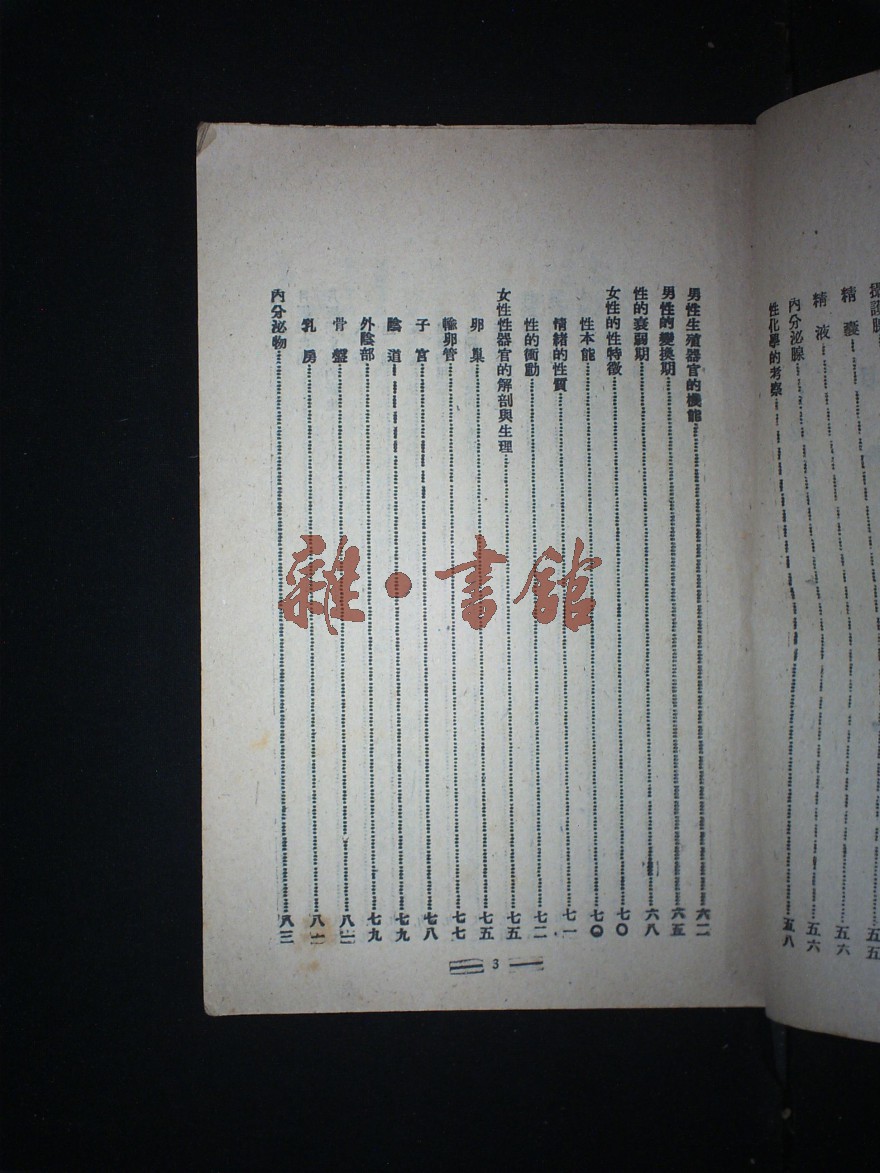 攝護腺
精囊……五五
精液……五六
內分泌腺……五六
性化學的考察……五八
男性生殖器官的機能……六二
男性的變換期……六五
性的衰弱期……六八
女性的性特徵……七〇
性本能……七〇
情緒的性質……七一
性的衝動……七二
女性性器官的解剖與生理……七五
卵巢……七五
輸卵管……七七
子宮……七八
陰道……七九
外陰部……七九
骨盤……八
乳房……八
內分泌物……八三
3
雜·書館